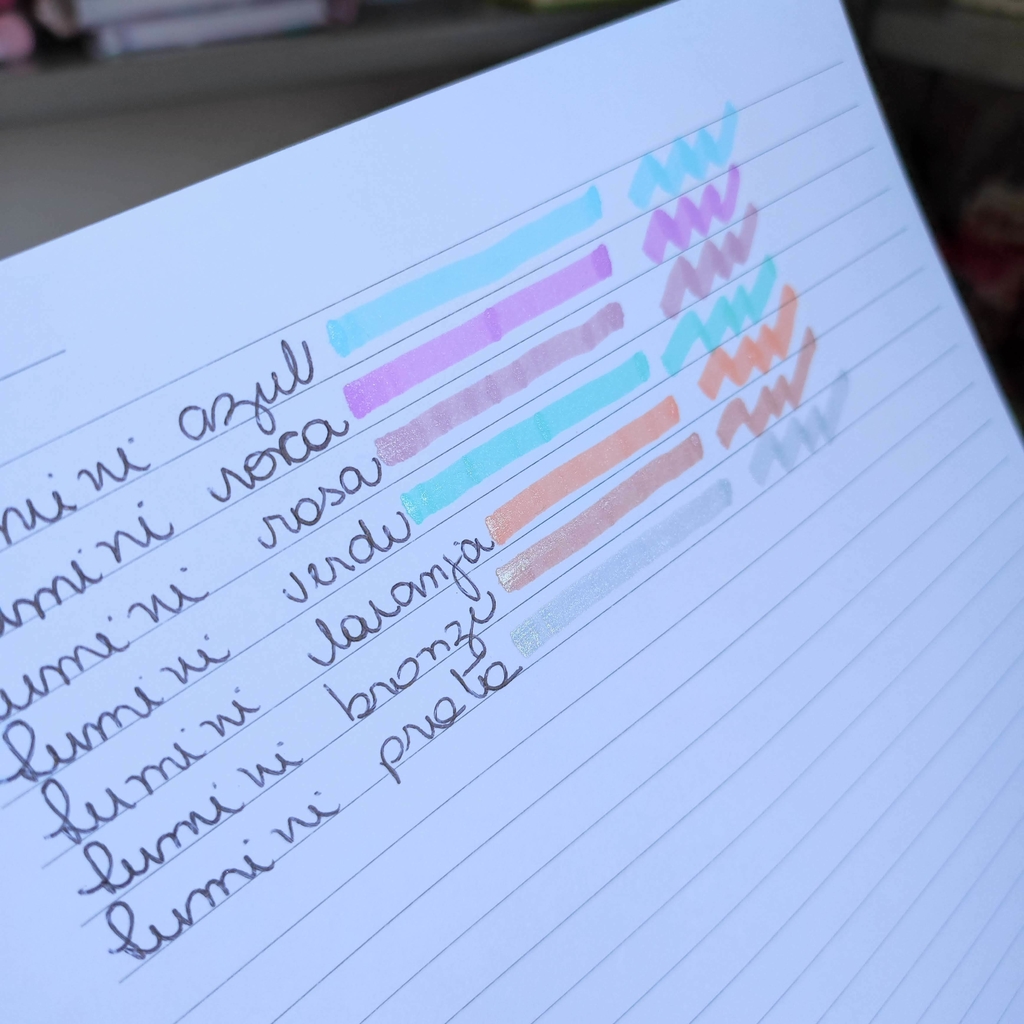 mini azul
umini roxa
umini rosa
Lumini verde
Lumini laranja
Lumini bronze
Lumini preto